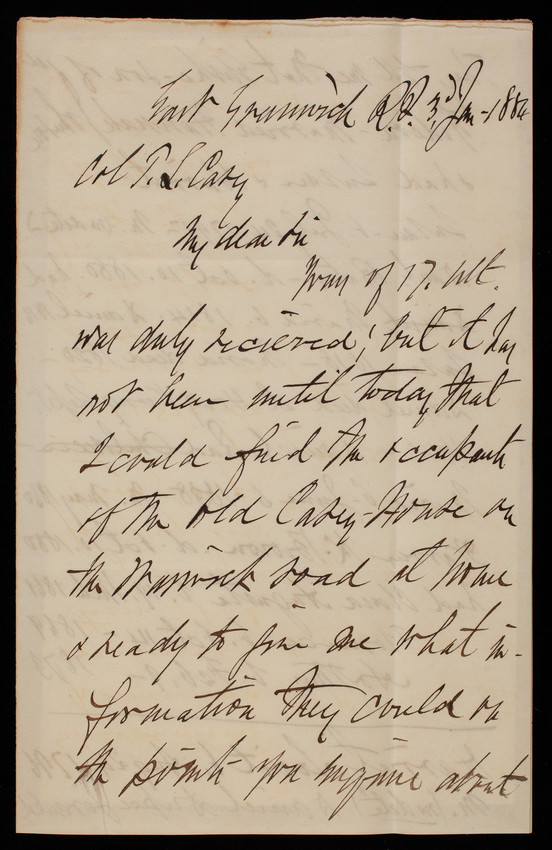 East Greenwich R.I. 3d Jan-1884
Col T. L. Casey
My dear Sir
Yours of 17. ult.
was duly recieved; but it has
not been until today that
I could find the occupants
of the old Casey-House on
the Warwick road at home
& ready to give me what in-
formation they could on
the points you inquire about